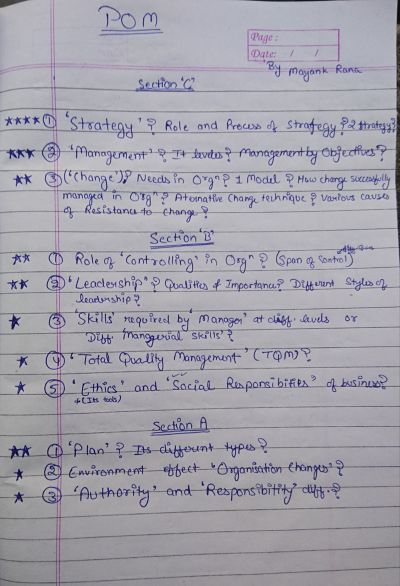 POM
Page:
Date: / /
By Mayank Rana
Section 'C'
★★★★ ① 'Strategy' ? Role and Process of Strategy ? 2 Strategy?
★★★ ② 'Management' ? It levels ? Management by Objectives' ?
★★ ③ ('Change')? Needs in Orgⁿ ? 1 Model ? How change successfully
managed in Orgⁿ ? Alternative Change technique ? Various causes
of Resistance to Change ?
Section 'B'
★★ ① Role of 'Controlling' in Orgⁿ ? (Span of Control)
★★ ② 'Leadership' ? Qualities & Importance ? Different Styles of
leadership ?
★ ③ 'Skills' required by 'Manager' at diff. levels or
Diff. 'Manggerial Skills' ?
★ ④ 'Total Quality Management' (TQM) ?
★ ⑤ 'Ethics' and 'Social Responsibilities' of business?
+(Its tools)
Section A
★★ ① 'Plan' ? Its different types ?
★ ② Environment effect 'Organisation Changes' ?
★ ③ 'Authority' and 'Responsibility' diff. ?